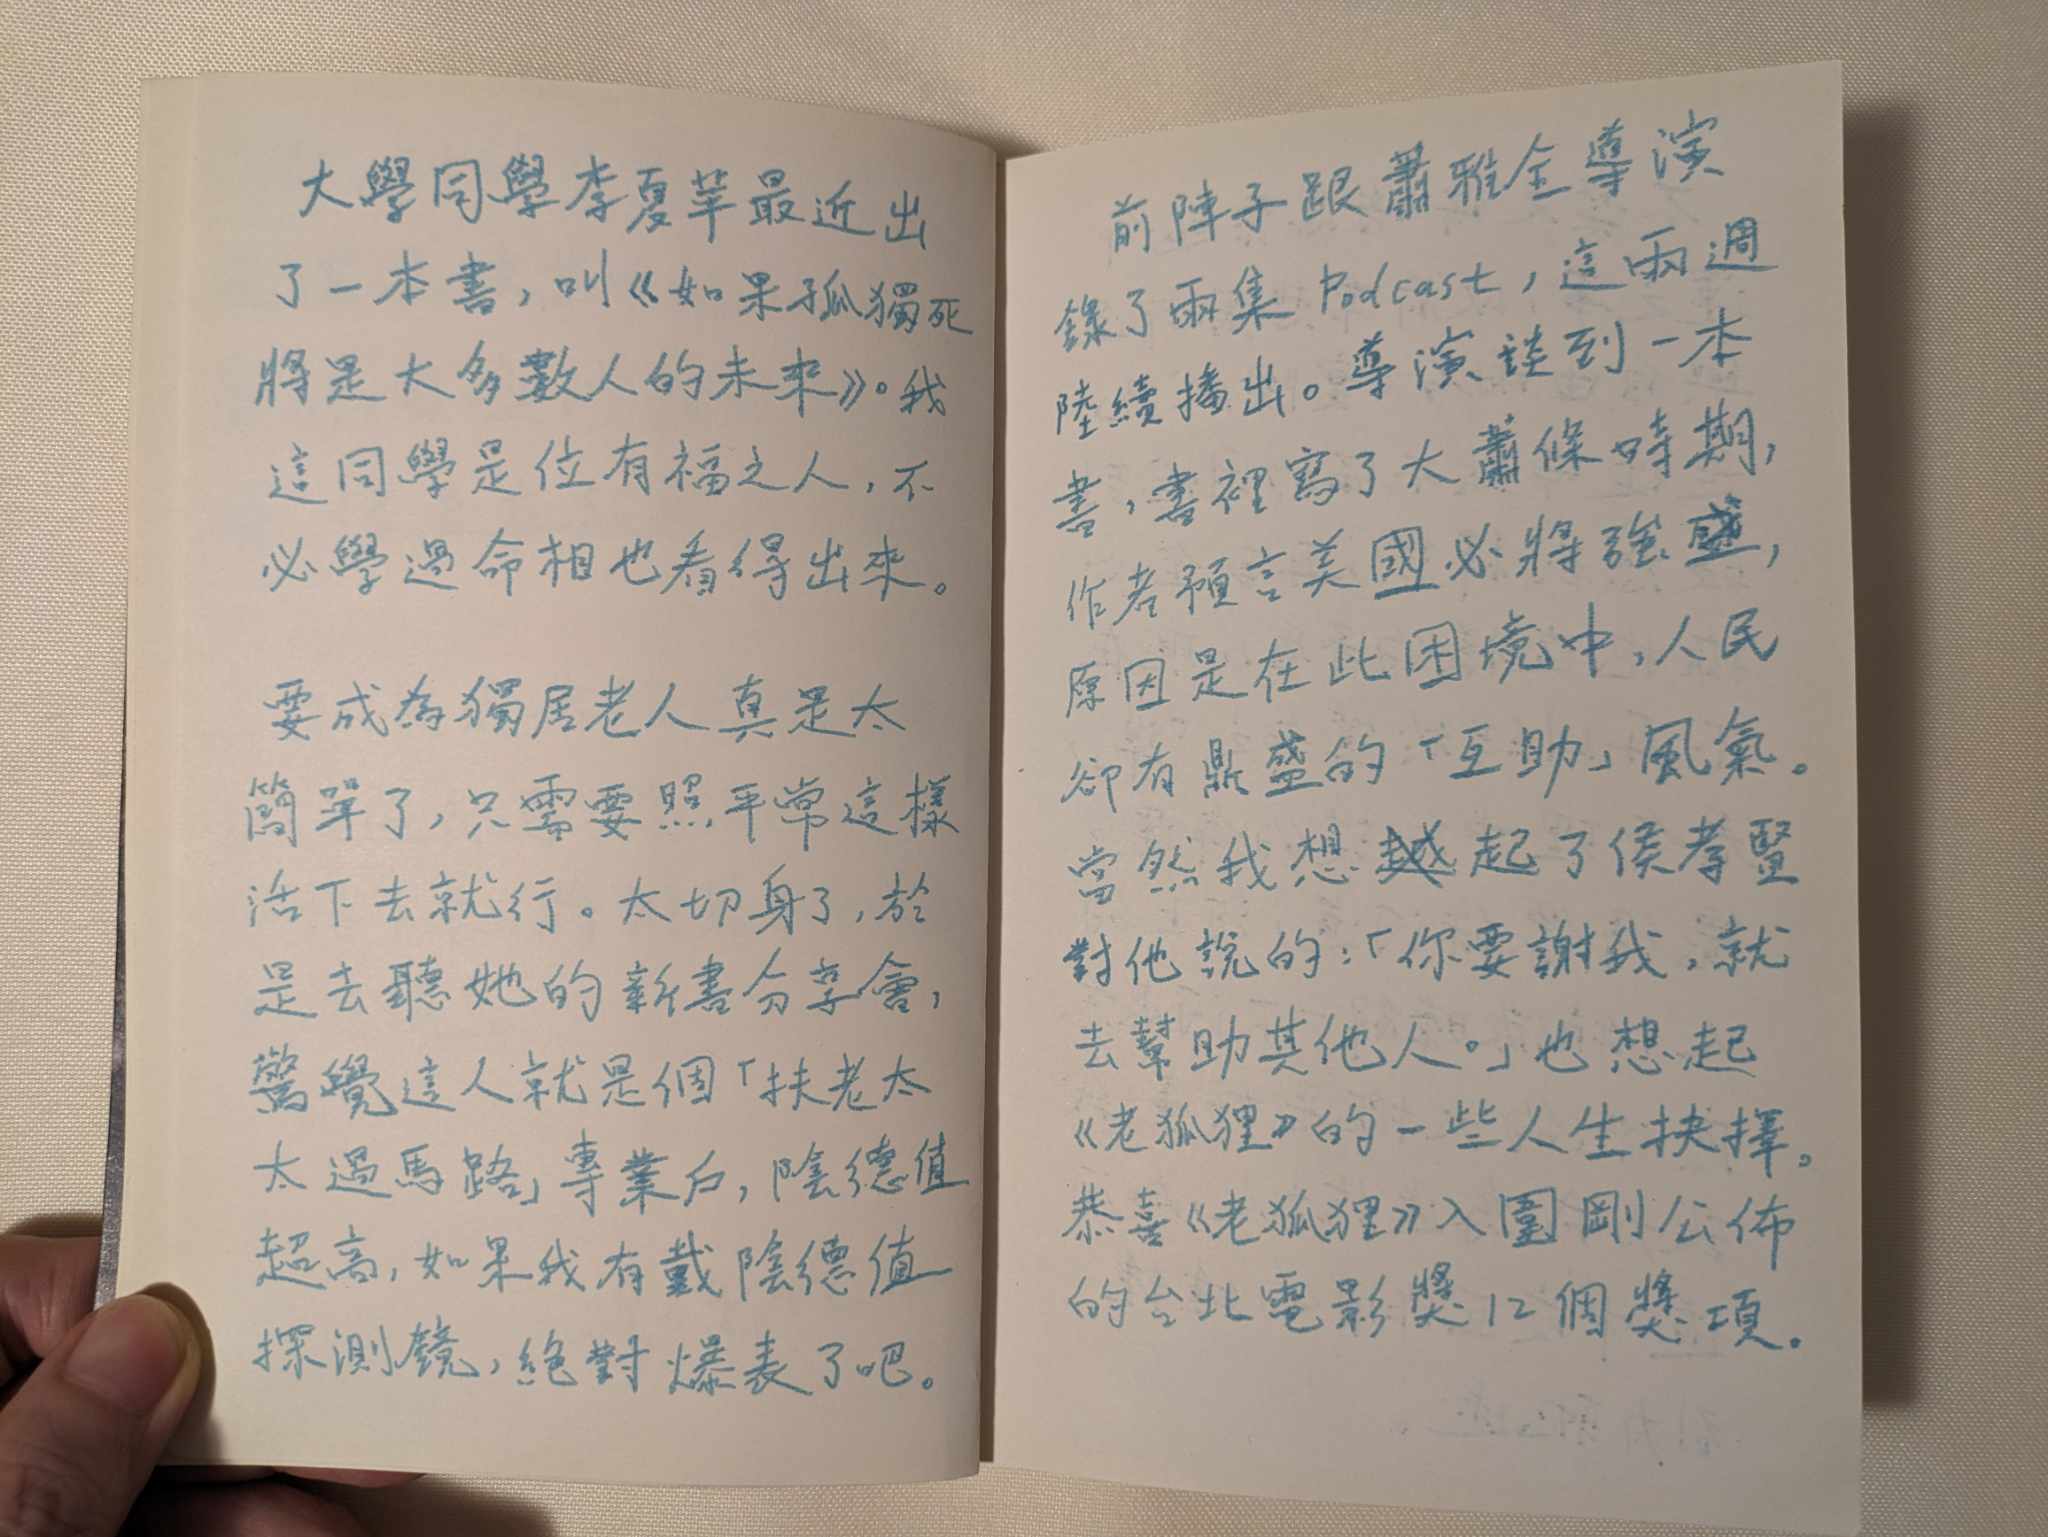 大學同學李夏苹最近出
了一本書，叫《如果孤獨死
將是大多數人的未來》。我
這同學是位有福之人，不
必學過命相也看得出來。
要成為獨居老人真是太
簡單了，只需要照平常這樣
活下去就行。太切身了，於
是去聽她的新書分享會，
驚覺這人就是個「扶老太
太過馬路」專業戶，陰德值
超高，如果我有戴陰德值
探測鏡，絕對爆表了吧。
前陣子跟蕭雅全導演
錄了兩集 Podcast，這兩週
陸續播出。導演談到一本
書，書裡寫了大蕭條時期，
作者預言美國必將強盛，
原因是在此困境中，人民
卻有鼎盛的「互助」風氣。
當然我想起了侯孝賢
對他說的：「你要謝我，就
去幫助其他人。」也想起
《老狐狸》的一些人生抉擇。
恭喜《老狐狸》入圍剛公佈
的台北電影獎12個獎項。